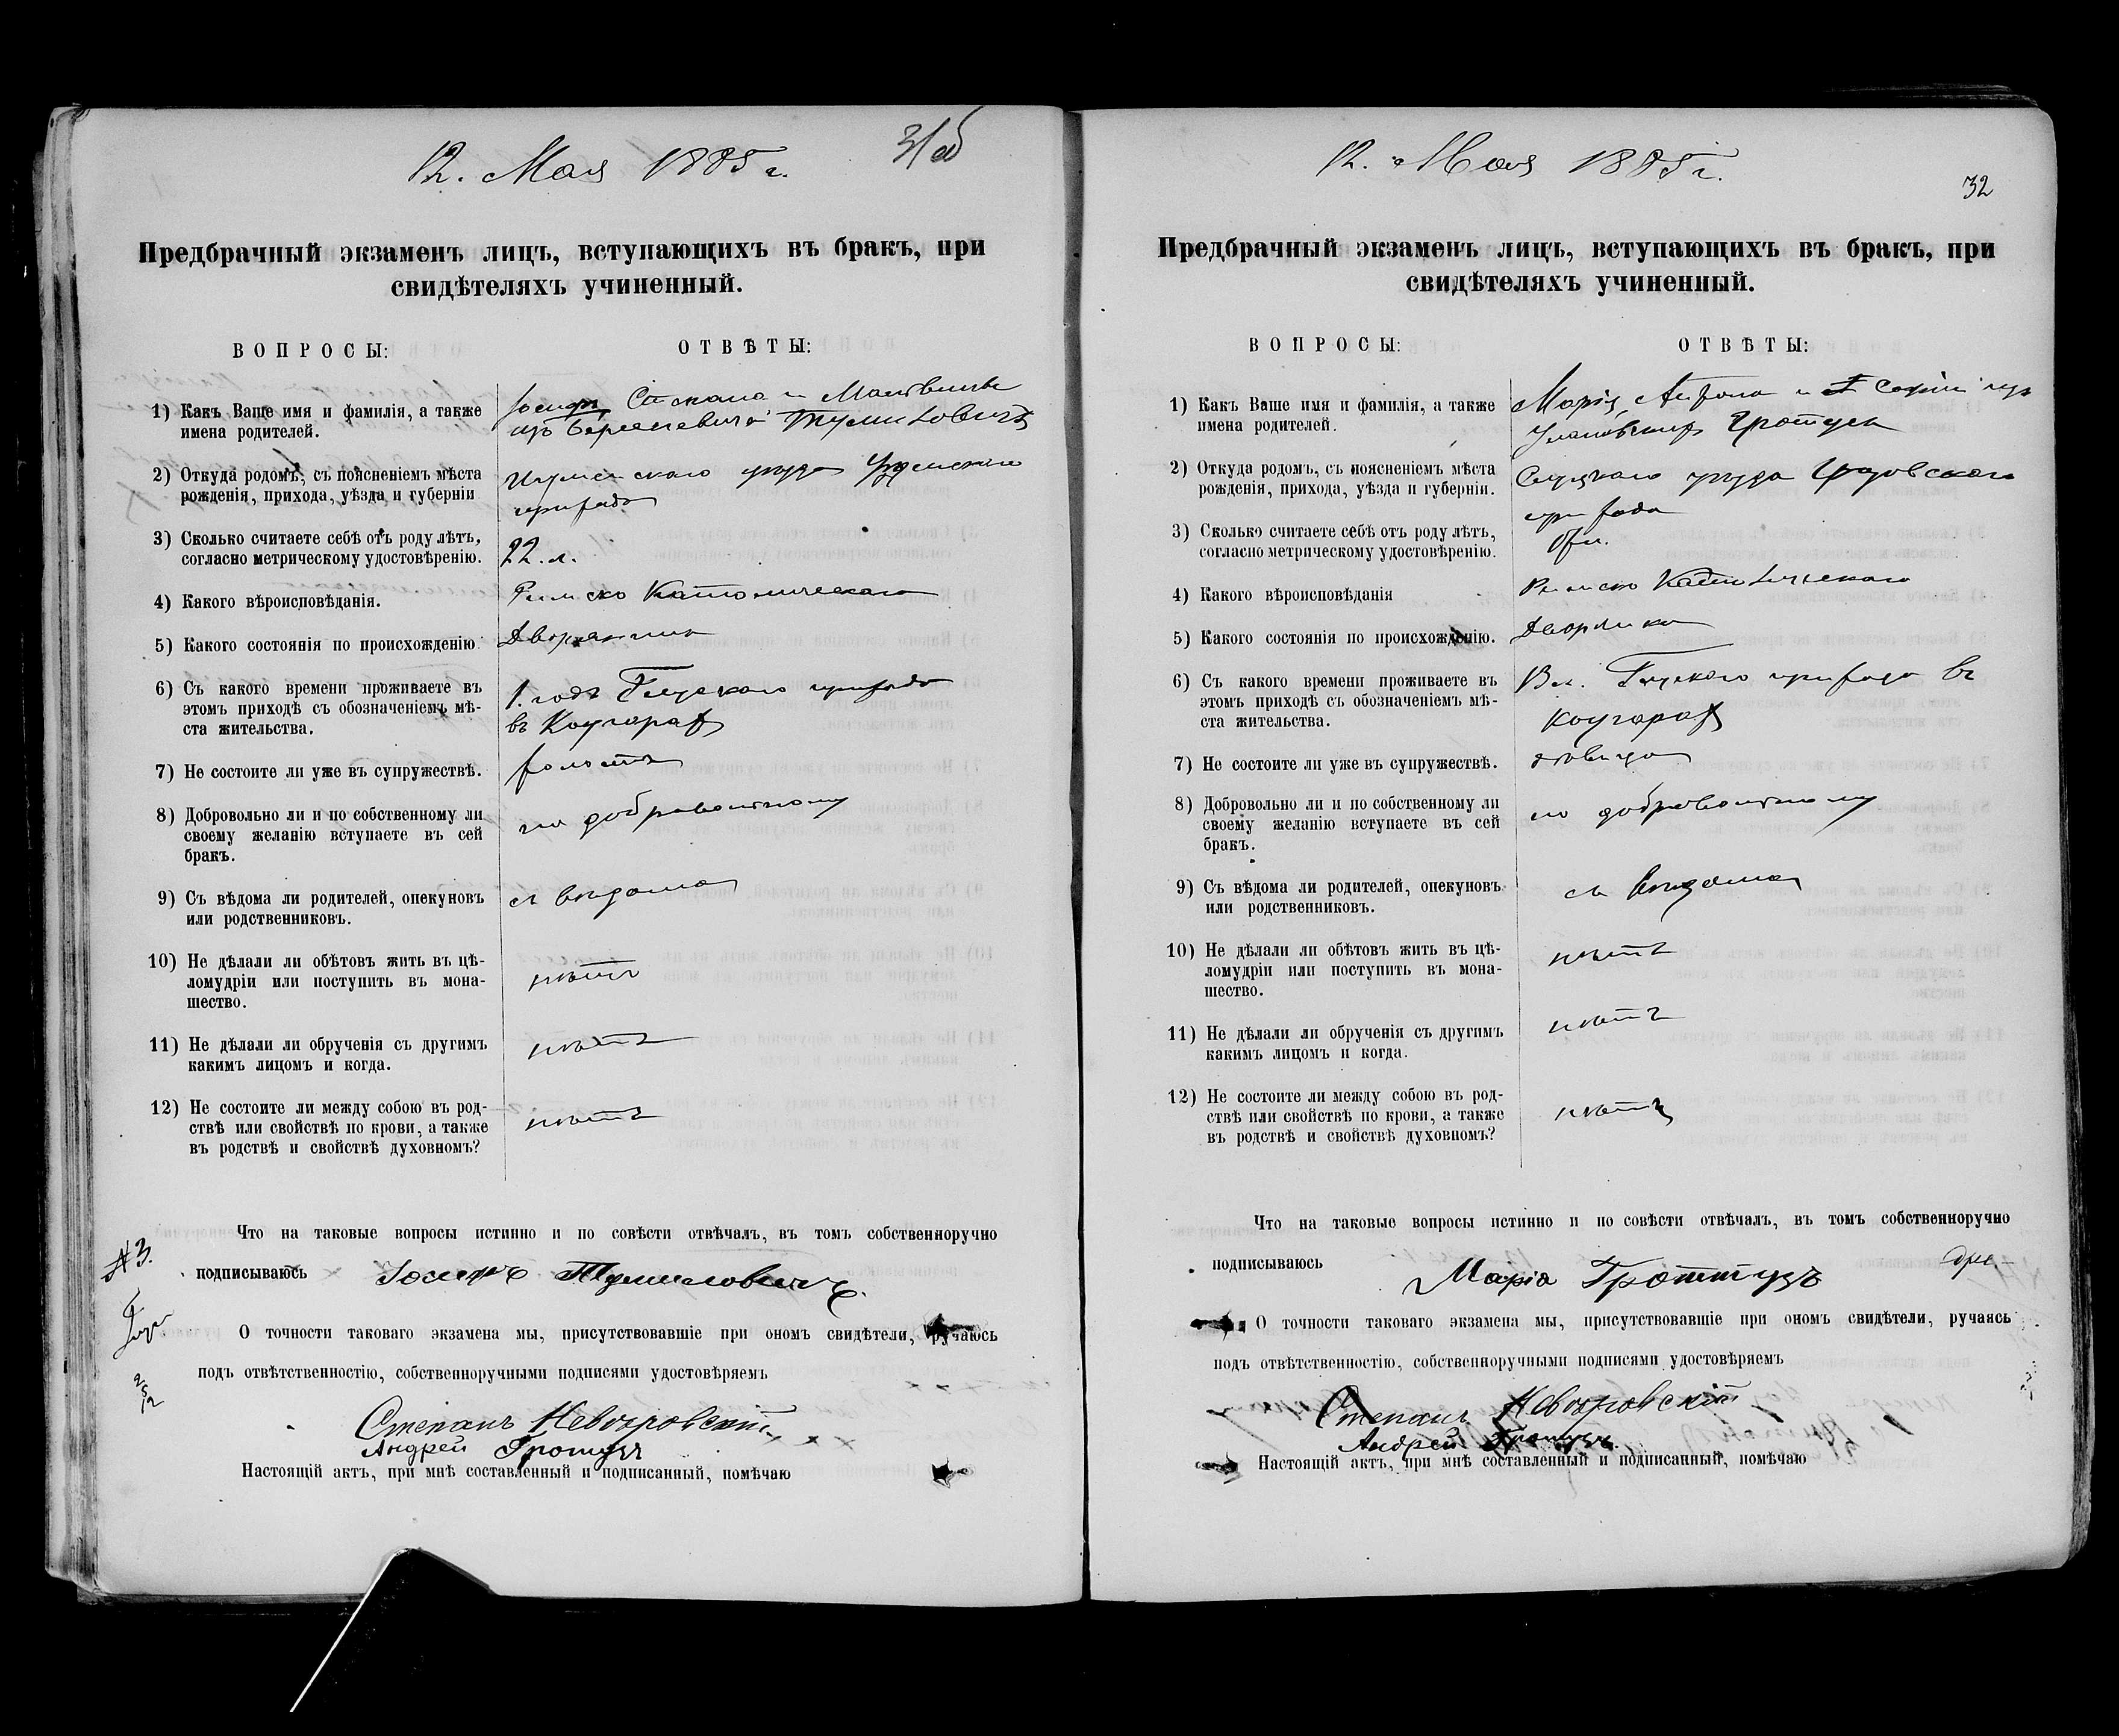 12. Мая 1885 г.
31об
Предбрачный экзаменъ лицъ, вступающихъ въ бракъ, при
свидѣтеляхъ учиненный.
ВОПРОСЫ:
ОТВѢТЫ:
1) Какъ Ваше имя и фамилія, а также
имена родителей.
Іосифъ, Стефана и
2) Откуда родомъ, съ поясненіемъ мѣста
рожденія, прихода, уѣзда и губерніи
Игуменскаго уѣзда
прихода
3) Сколько считаете себѣ отъ роду лѣтъ,
согласно метрическому удостовѣренію.
22. л.
4) Какого вѣроисповѣданія.
Римско Католическаго
5) Какого состоянія по происхожденію.
Дворянинъ
6) Съ какого времени проживаете въ
этомъ приходѣ съ обозначеніемъ мѣ-
ста жительства.
1. годъ прихода
въ
7) Не состоите ли уже въ супружествѣ.
холостъ
8) Добровольно ли и по собственному ли
своему желанію вступаете въ сей
бракъ.
по добровольному
9) Съ вѣдома ли родителей, опекуновъ
или родственниковъ.
съ вѣдома
10) Не дѣлали ли обѣтовъ жить въ цѣ-
ломудріи или поступить въ мона-
шество.
нѣтъ
11) Не дѣлали ли обрученія съ другимъ
какимъ лицомъ и когда.
нѣтъ
12) Не состоите ли между собою въ род-
ствѣ или свойствѣ по крови, а также
въ родствѣ и свойствѣ духовномъ?
нѣтъ
Что на таковые вопросы истинно и по совѣсти отвѣчалъ, въ томъ собственноручно
№ 3.
подписываюсь Іосифъ Тумиловичъ.
О точности таковаго экзамена мы, присутствовавшіе при ономъ свидѣтели, ручаюсь
подъ отвѣтственностію, собственноручными подписями удостовѣряемъ
Степанъ
Андрей Гротузъ
Настоящій актъ, при мнѣ составленный и подписанный, помѣчаю
12. Мая 1885 г.
32
Предбрачный экзаменъ лицъ, вступающихъ въ бракъ, при
свидѣтеляхъ учиненный.
ВОПРОСЫ:
ОТВѢТЫ:
1) Какъ Ваше имя и фамилія, а также
имена родителей.
Марія, Антона и Софіи изъ
2) Откуда родомъ, съ поясненіемъ мѣста
рожденія, прихода, уѣзда и губерніи.
Слуцкаго уѣзда
прихода
3) Сколько считаете себѣ отъ роду лѣтъ,
согласно метрическому удостовѣренію.
4) Какого вѣроисповѣданія
Римско Католическаго
5) Какого состоянія по происхожденію.
Дворянка
6) Съ какого времени проживаете въ
этомъ приходѣ съ обозначеніемъ мѣ-
ста жительства.
прихода въ
7) Не состоите ли уже въ супружествѣ.
дѣвица
8) Добровольно ли и по собственному ли
своему желанію вступаете въ сей
бракъ.
по добровольному
9) Съ вѣдома ли родителей, опекуновъ
или родственниковъ.
съ вѣдома
10) Не дѣлали ли обѣтовъ жить въ цѣ-
ломудріи или поступить въ мона-
шество.
нѣтъ
11) Не дѣлали ли обрученія съ другимъ
какимъ лицомъ и когда.
нѣтъ
12) Не состоите ли между собою въ род-
ствѣ или свойствѣ по крови, а также
въ родствѣ и свойствѣ духовномъ?
нѣтъ
Что на таковые вопросы истинно и по совѣсти отвѣчалъ, въ томъ собственноручно
подписываюсь
Марія Гроттузъ
О точности таковаго экзамена мы, присутствовавшіе при ономъ свидѣтели, ручаясь
подъ отвѣтственностію, собственноручными подписями удостовѣряемъ
Степанъ
Андрей Гротузъ.
Настоящій актъ, при мнѣ составленный и подписанный, помѣчаю